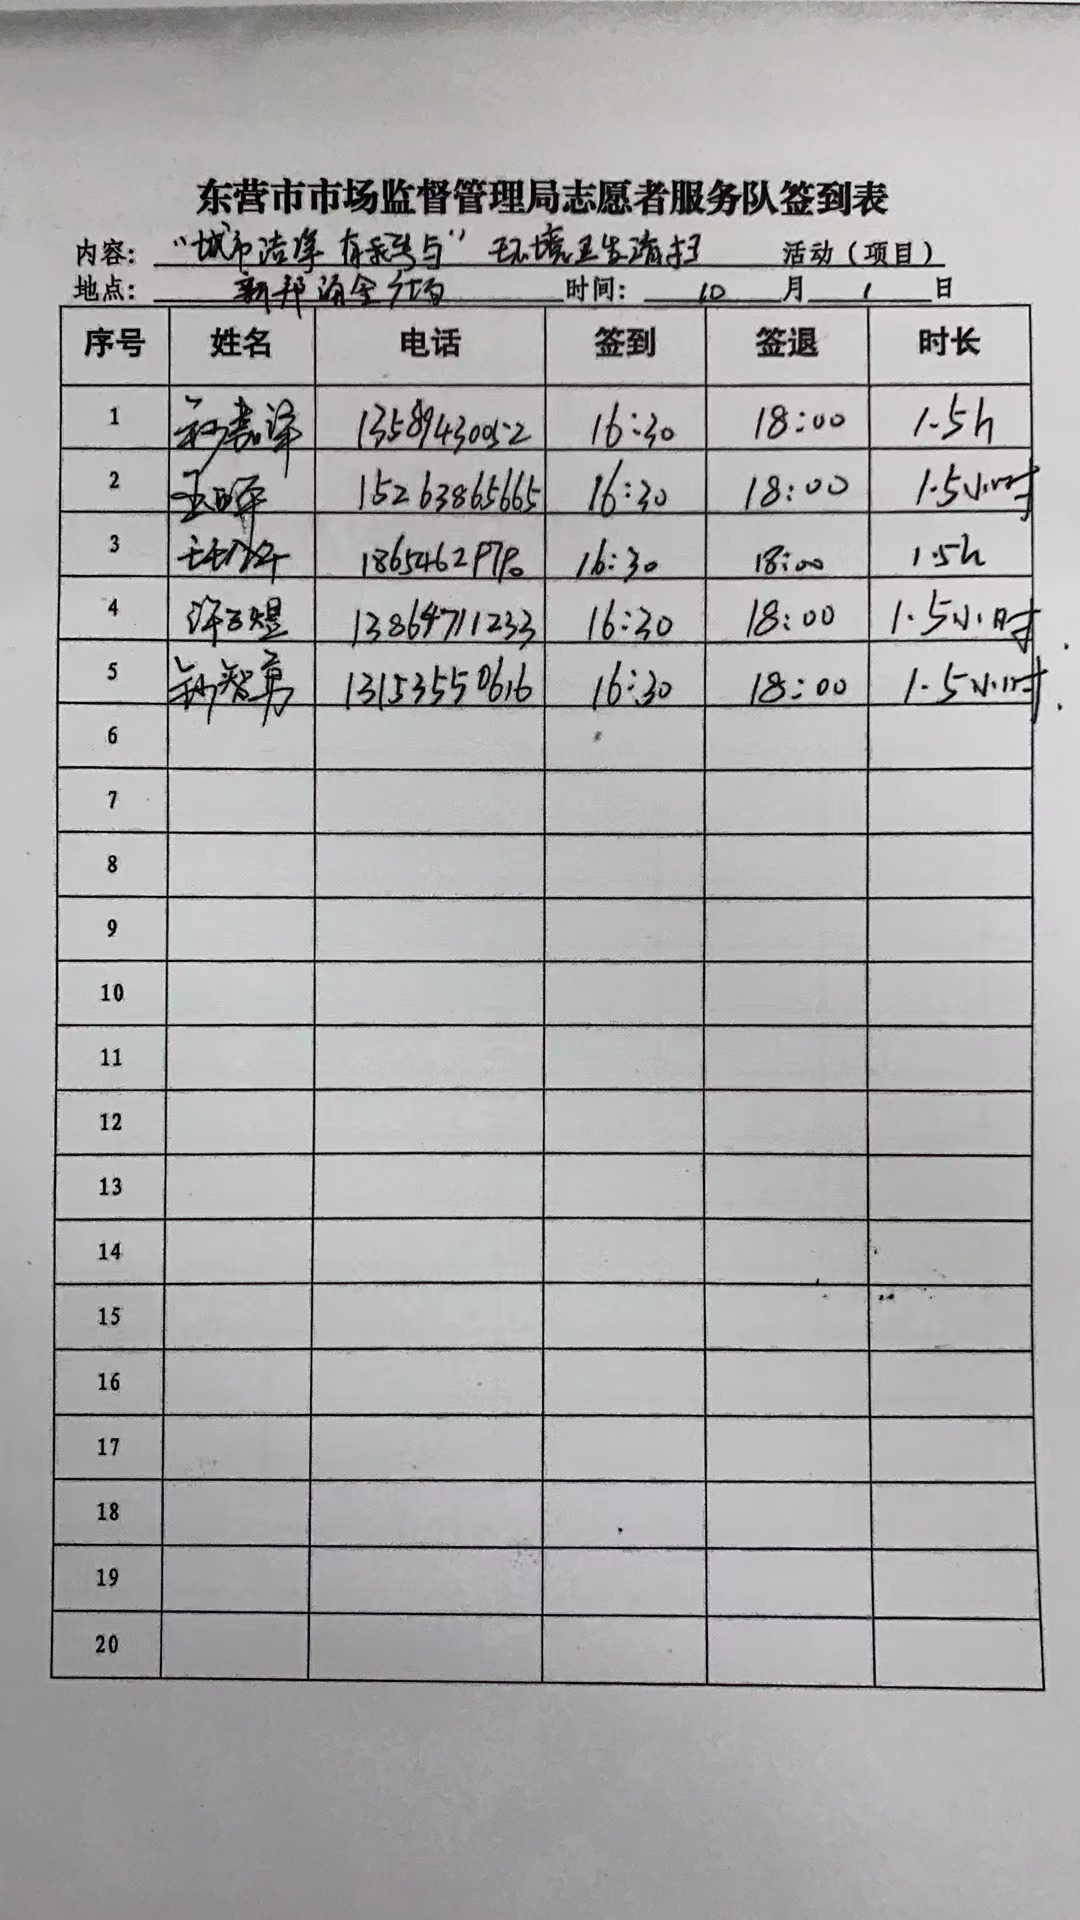 东营市市场监督管理局志愿者服务队签到表
内容：“城市洁净 有我参与” 环境卫生清扫 活动（项目）
地点： 新邦 广场 时间： 10 月 1 日
序号 姓名 电话 签到 签退 时长
1 13589430052 16:30 18:00 1.5h
2 15263865665 16:30 18:00 1.5小时
3 16:30 18:00 1.5h
4 13864711233 16:30 18:00 1.5小时
5 智勇 13153550616 16:30 18:00 1.5小时
6
7
8
9
10
11
12
13
14
15
16
17
18
19
20